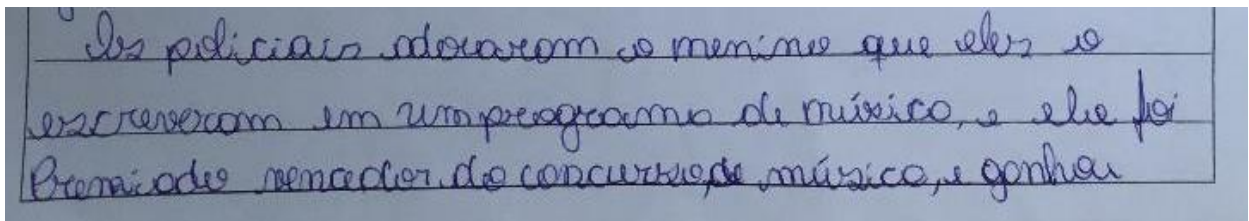 Os policiais adoraram o menino que eles o
escreveram em um programa de músico, e ele foi
Premiado vencedor do concurso de músico, e ganhou